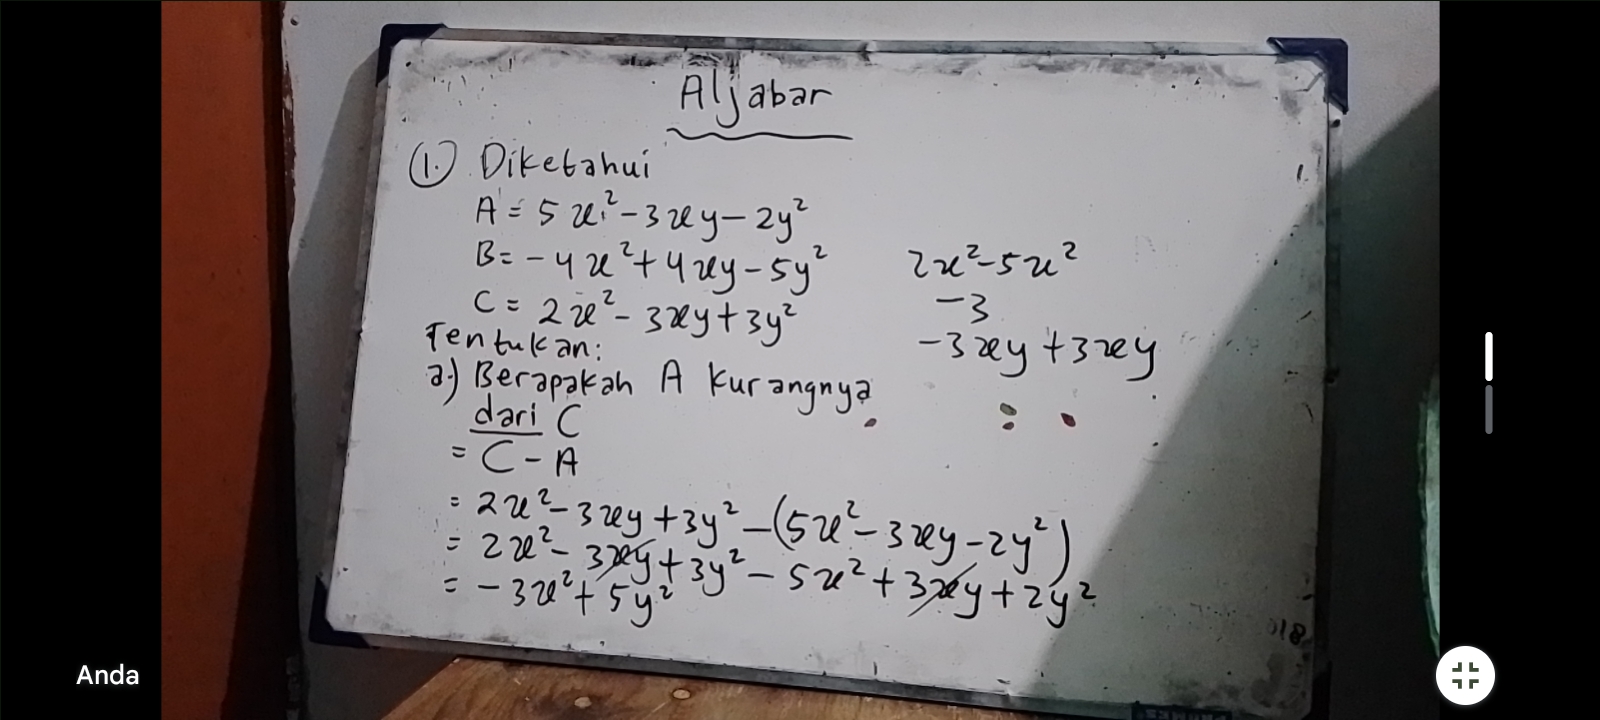 Aljabar
1. Diketahui
A = 5x² - 3xy - 2y²
B = -4x² + 4xy - 5y²
C = 2x² - 3xy + 3y²
Tentukan:
a.) Berapakah A kurangnya
dari C
= C - A
= 2x² - 3xy + 3y² - (5x² - 3xy - 2y²)
= 2x² - 3xy + 3y² - 5x² + 3xy + 2y²
= -3x² + 5y²
2x² - 5x²
-3
-3xy + 3xy
Anda